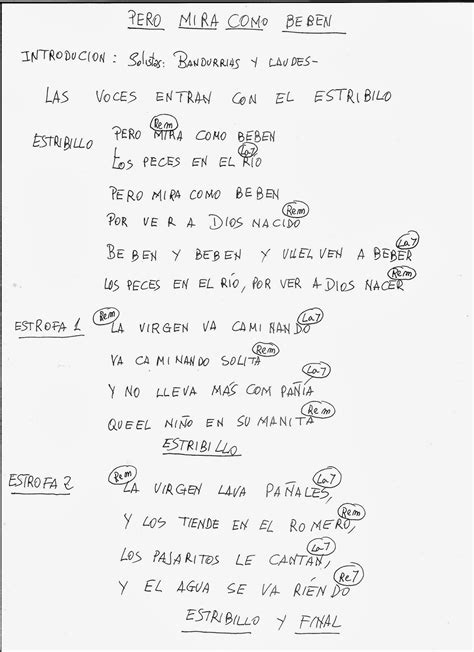 PERO MIRA COMO BEBEN
INTRODUCION: Solistas: BANDURRIAS Y LAUDES-
LAS VOCES ENTRAN CON EL ESTRIBILO
Rem
ESTRIBILLO PERO MIRA COMO BEBEN
La7
LOS PECES EN EL RÍO
PERO MIRA COMO BEBEN
Rem
POR VER A DIOS NACIDO
La7
BEBEN Y BEBEN Y VUELVEN A BEBER
Rem
LOS PECES EN EL RÍO, POR VER A DIOS NACER
Rem La7
ESTROFA 1 LA VIRGEN VA CAMINANDO
Rem
VA CAMINANDO SOLITA
La7
Y NO LLEVA MÁS COMPAÑIA
Rem
QUE EL NIÑO EN SU MANITA
ESTRIBILLO
Rem La7
ESTROFA 2 LA VIRGEN LAVA PAÑALES,
Rem
Y LOS TIENDE EN EL ROMERO,
La7
LOS PAJARITOS LE CANTAN,
Re7
Y EL AGUA SE VA RIÉNDO
ESTRIBILLO Y FINAL